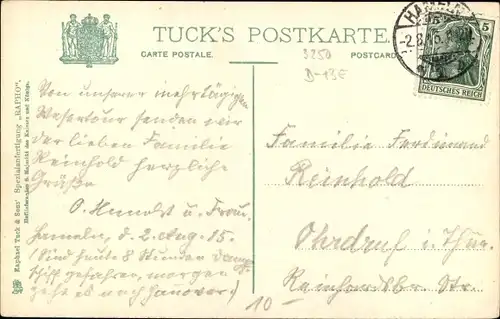 TUCK'S POSTKARTE.
CARTE POSTALE.
POSTCARD.
HAMELN
-2.8.15.
5
DEUTSCHES REICH
3250
D-13E
Raphael Tuck & Sons' Spezialanfertigung „RAPHO".
Hoflieferanten S. Majestät des Kaisers und Königs.
Von unserer mehrtägigen
Wesertour senden wir
der lieben Familie
Reinhold herzliche
Grüße
O. und Frau.
Hameln, d. 2. Aug. 15.
(Sind heute 8 Stunden Dampf-
schiff gefahren, morgen
geht es nach Hannover.)
Familie Ferdinand
Reinhold
Ohrdruf i. Thür.
Str.
10-